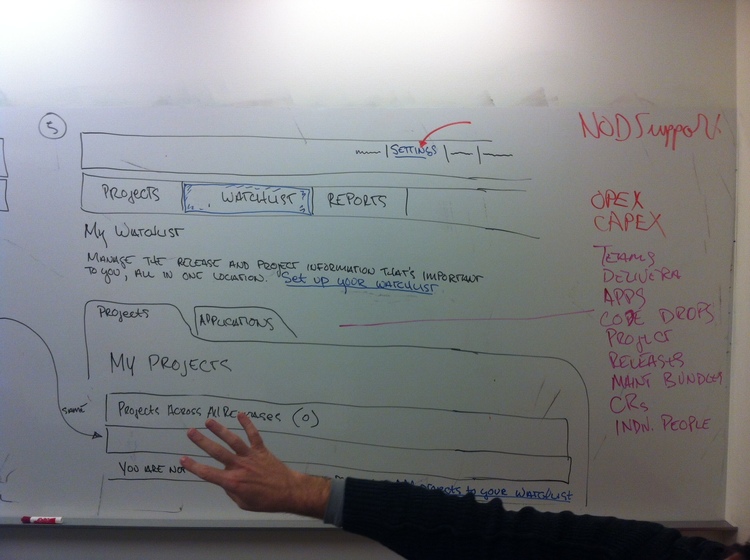 5
SETTINGS
PROJECTS
WATCHLIST
REPORTS
MY WATCHLIST
MANAGE THE RELEASE AND PROJECT INFORMATION THAT'S IMPORTANT
TO YOU, ALL IN ONE LOCATION. SET UP YOUR WATCHLIST
PROJECTS
APPLICATIONS
MY PROJECTS
SAME
PROJECTS ACROSS ALL RELEASES (0)
YOU ARE NOT
ADD PROJECTS TO YOUR WATCHLIST
NOD Support
OPEX
CAPEX
TEAMS
DELIVERA
APPS
CODE DROPS
PROJECT
RELEASES
MAINT BUNDLES
CRs
INDN. PEOPLE